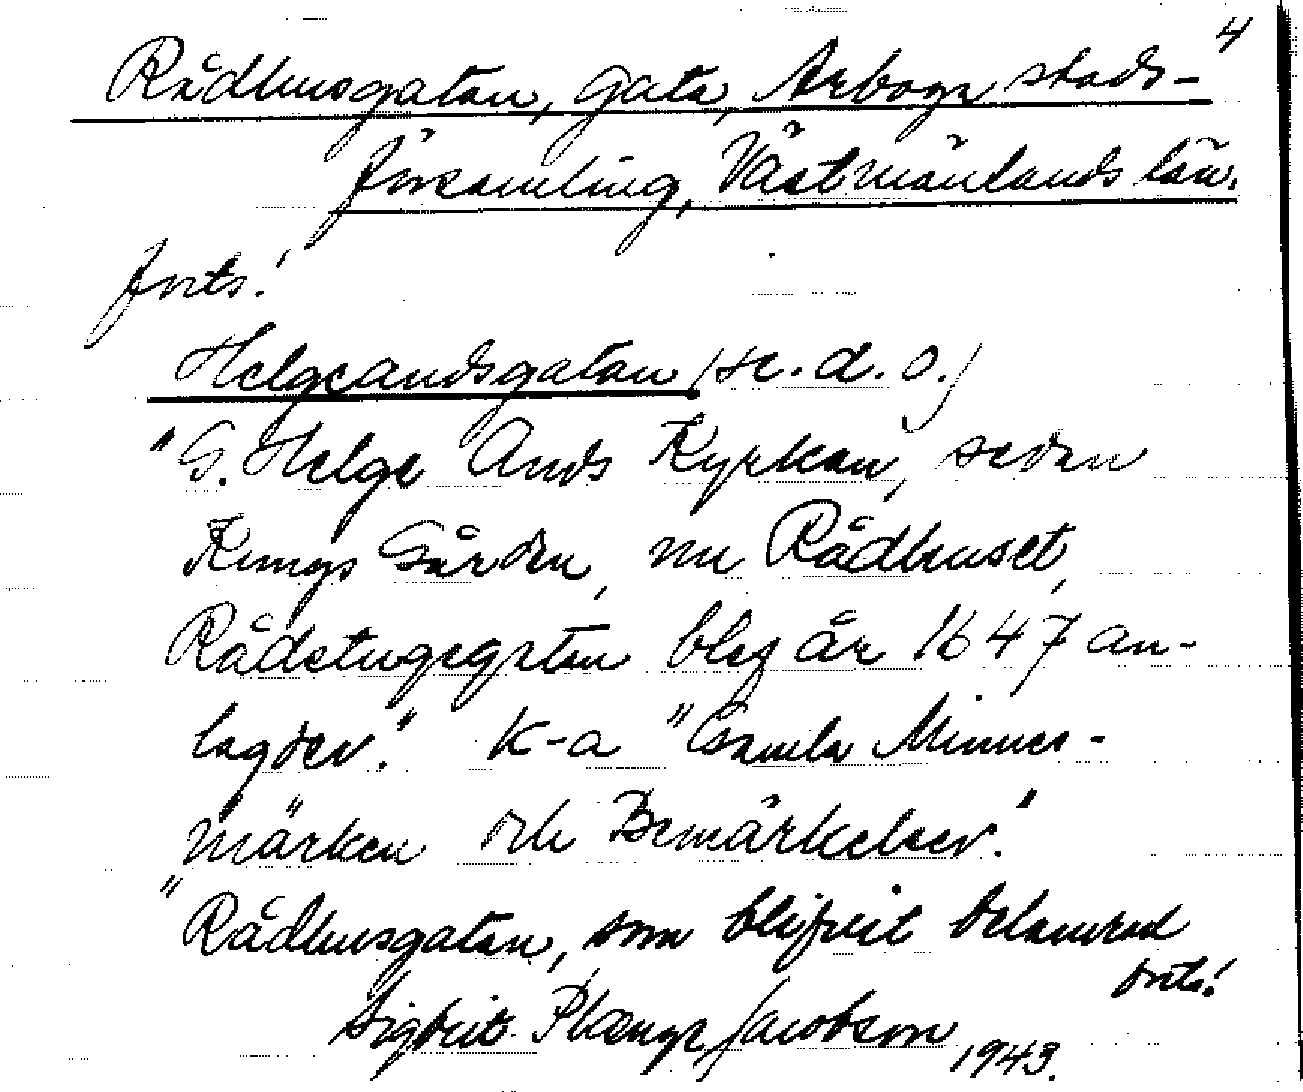 4
Rådhusgatan, gata, Arboga stads-
församling, Västmanlands län.
forts!
Helgeandsgatan (se. d. o.)
"S. Helge Ands Kyrkan, sedan
Kungs Gården, nu Rådhuset,
Rådstugugrten blef år 1647 an-
lagder." K-a "Gamla Minnes-
märken och Bemärkelser."
"Rådhusgatan, som blifvit belamrad
forts!
Sigbrit Plænge Jacobson 1943.